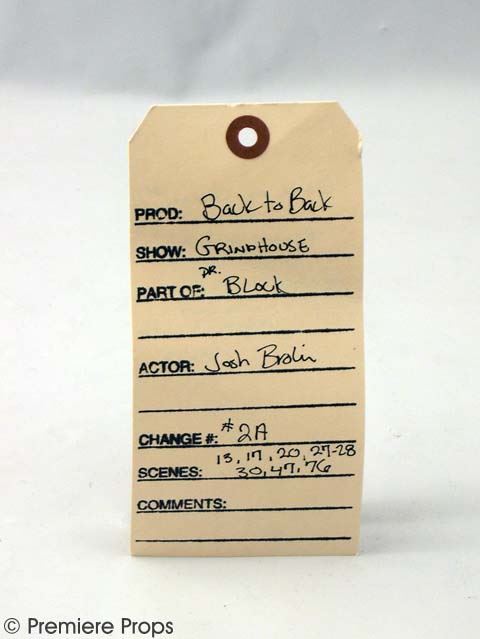 PROD: Back to Back
SHOW: GRINDHOUSE
DR.
PART OF: BLOCK
ACTOR: Josh Brolin
CHANGE #: #2A
13, 17, 20, 27-28
SCENES: 30, 47, 76
COMMENTS:
© Premiere Props